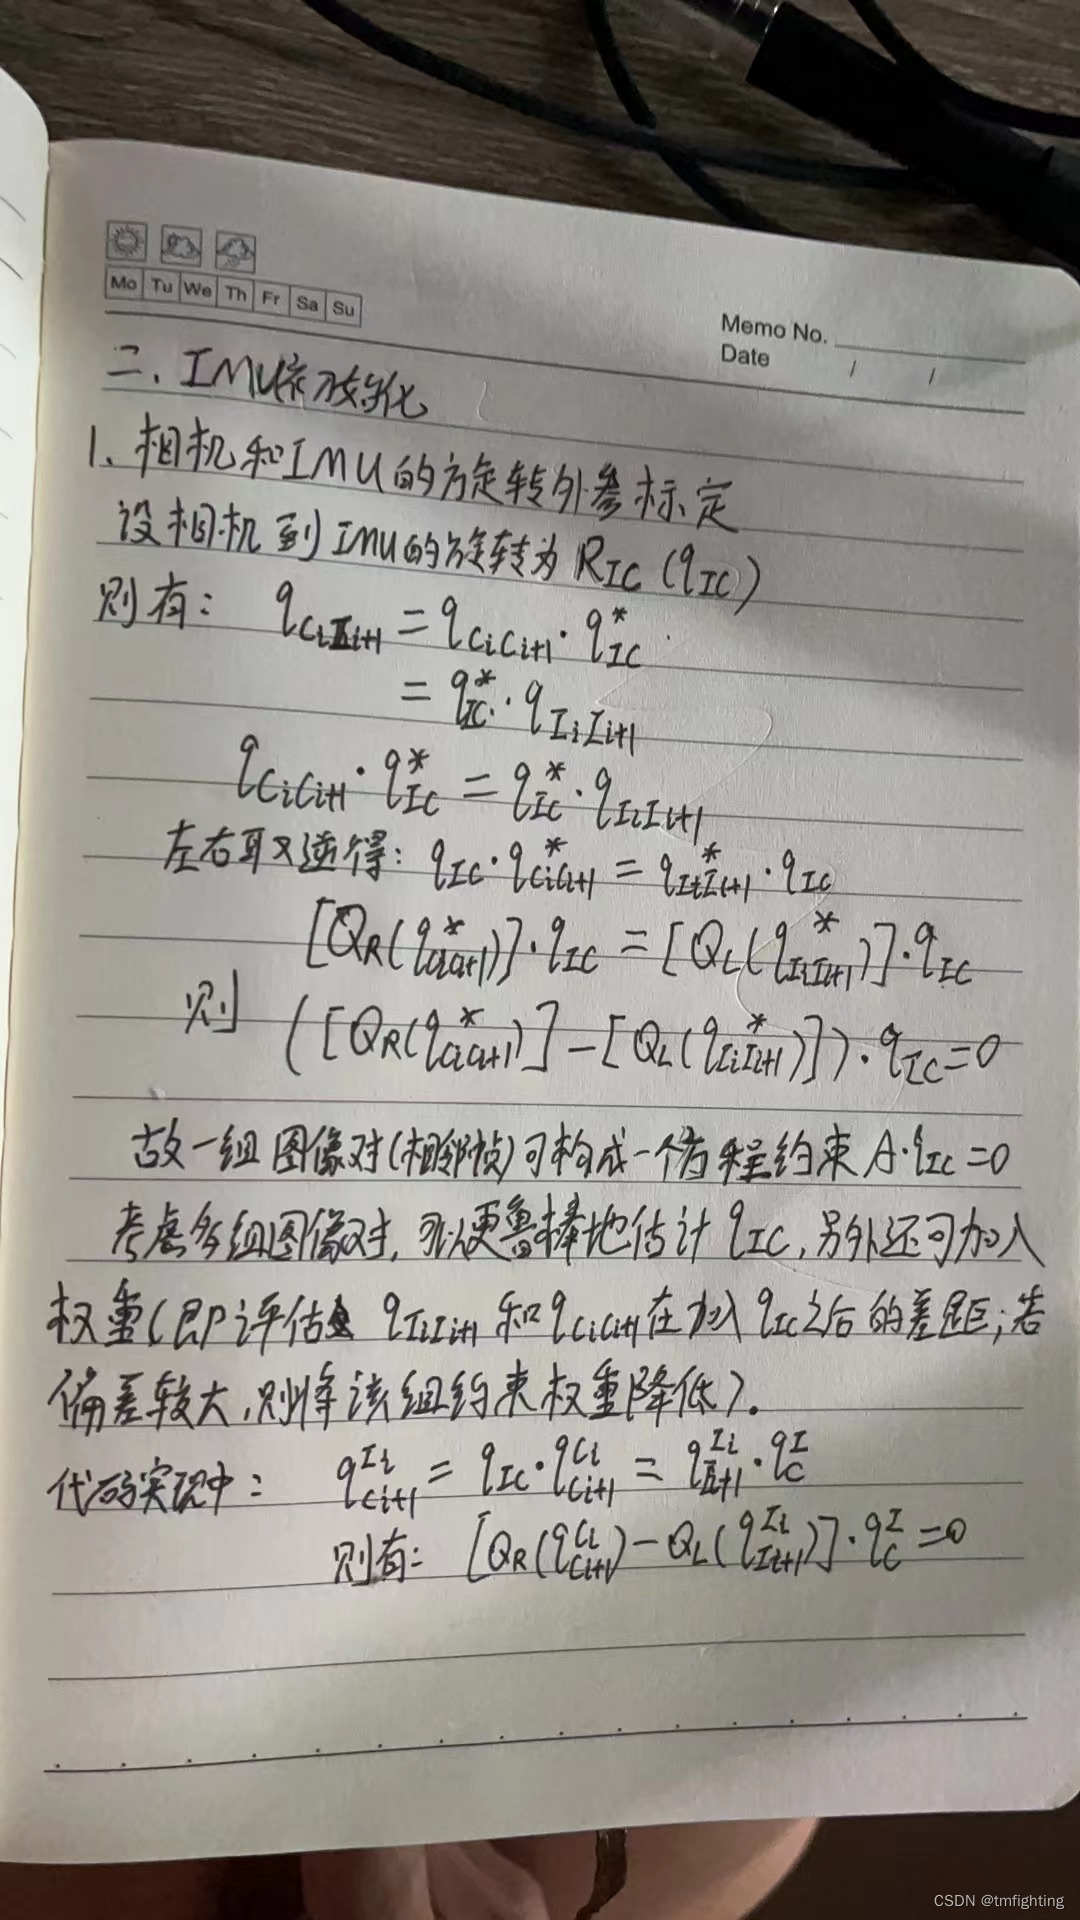 Mo Tu We Th Fr Sa Su
Memo No.
Date / /
二、IMU
1、相机和IMU的旋转外参标定
设相机到IMU的旋转为 R_IC (q_IC)
则有： q_{CiIi+1} = q_{CiCi+1} · q*_{IC}
= q*_{IC} · q_{IiIi+1}
q_{CiCi+1} · q*_{IC} = q*_{IC} · q_{IiIi+1}
左右取逆得： q_{IC} · q*_{CiCi+1} = q*_{IiIi+1} · q_{IC}
[Q_R(q*_{CiCi+1})] · q_{IC} = [Q_L(q*_{IiIi+1})] · q_{IC}
则 ([Q_R(q*_{CiCi+1})] − [Q_L(q*_{IiIi+1})]) · q_{IC} = 0
故一组图像对(相邻帧)可构成一个方程约束 A·q_{IC}=0
考虑多组图像对，可以更鲁棒地估计 q_{IC}，另外还可加入
权重(即评估 q_{IiIi+1} 和 q_{CiCi+1} 在加入 q_{IC} 之后的差距；若
偏差较大，则将该组约束权重降低)。
代码实现中： q^{Ii}_{Ci+1} = q_{IC} · q^{Ci}_{Ci+1} = q^{Ii}_{Ii+1} · q^I_C
则有： [Q_R(q^{Ci}_{Ci+1}) − Q_L(q^{Ii}_{Ii+1})] · q^I_C = 0
CSDN @tmfighting